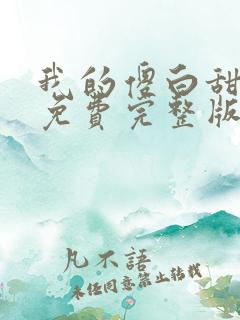 我的傻白甜
免費完整版
凡不語
未经同意禁止转载